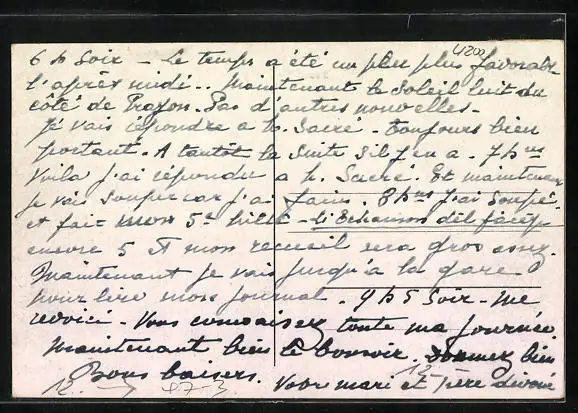 4200
6 h Soir - Le temps a été un peu plus favorable
l'après midi.. Maintenant le Soleil luit du
côté de Pas d'autres nouvelles-
Je vais répondre a M. Sacré - toujours bien
portant. A tantôt la Suite S'il y en a. 7 hres
Voilà j'ai répondu a M. Sacré. Et maintenant
Je vais Souper car j'ai faim. 8 hres J'ai Soupé.
et fait mon 5e billet -
encore 5 et mon recueil sera gros assez.
Maintenant Je vais jusqu'à la gare
pour lire mon journal. 9 h 5 Soir - me
revoici - Vous connaissez toute ma journée
Maintenant bien le bonsoir. Dormez bien
Bons baisers. Votre mari et Père